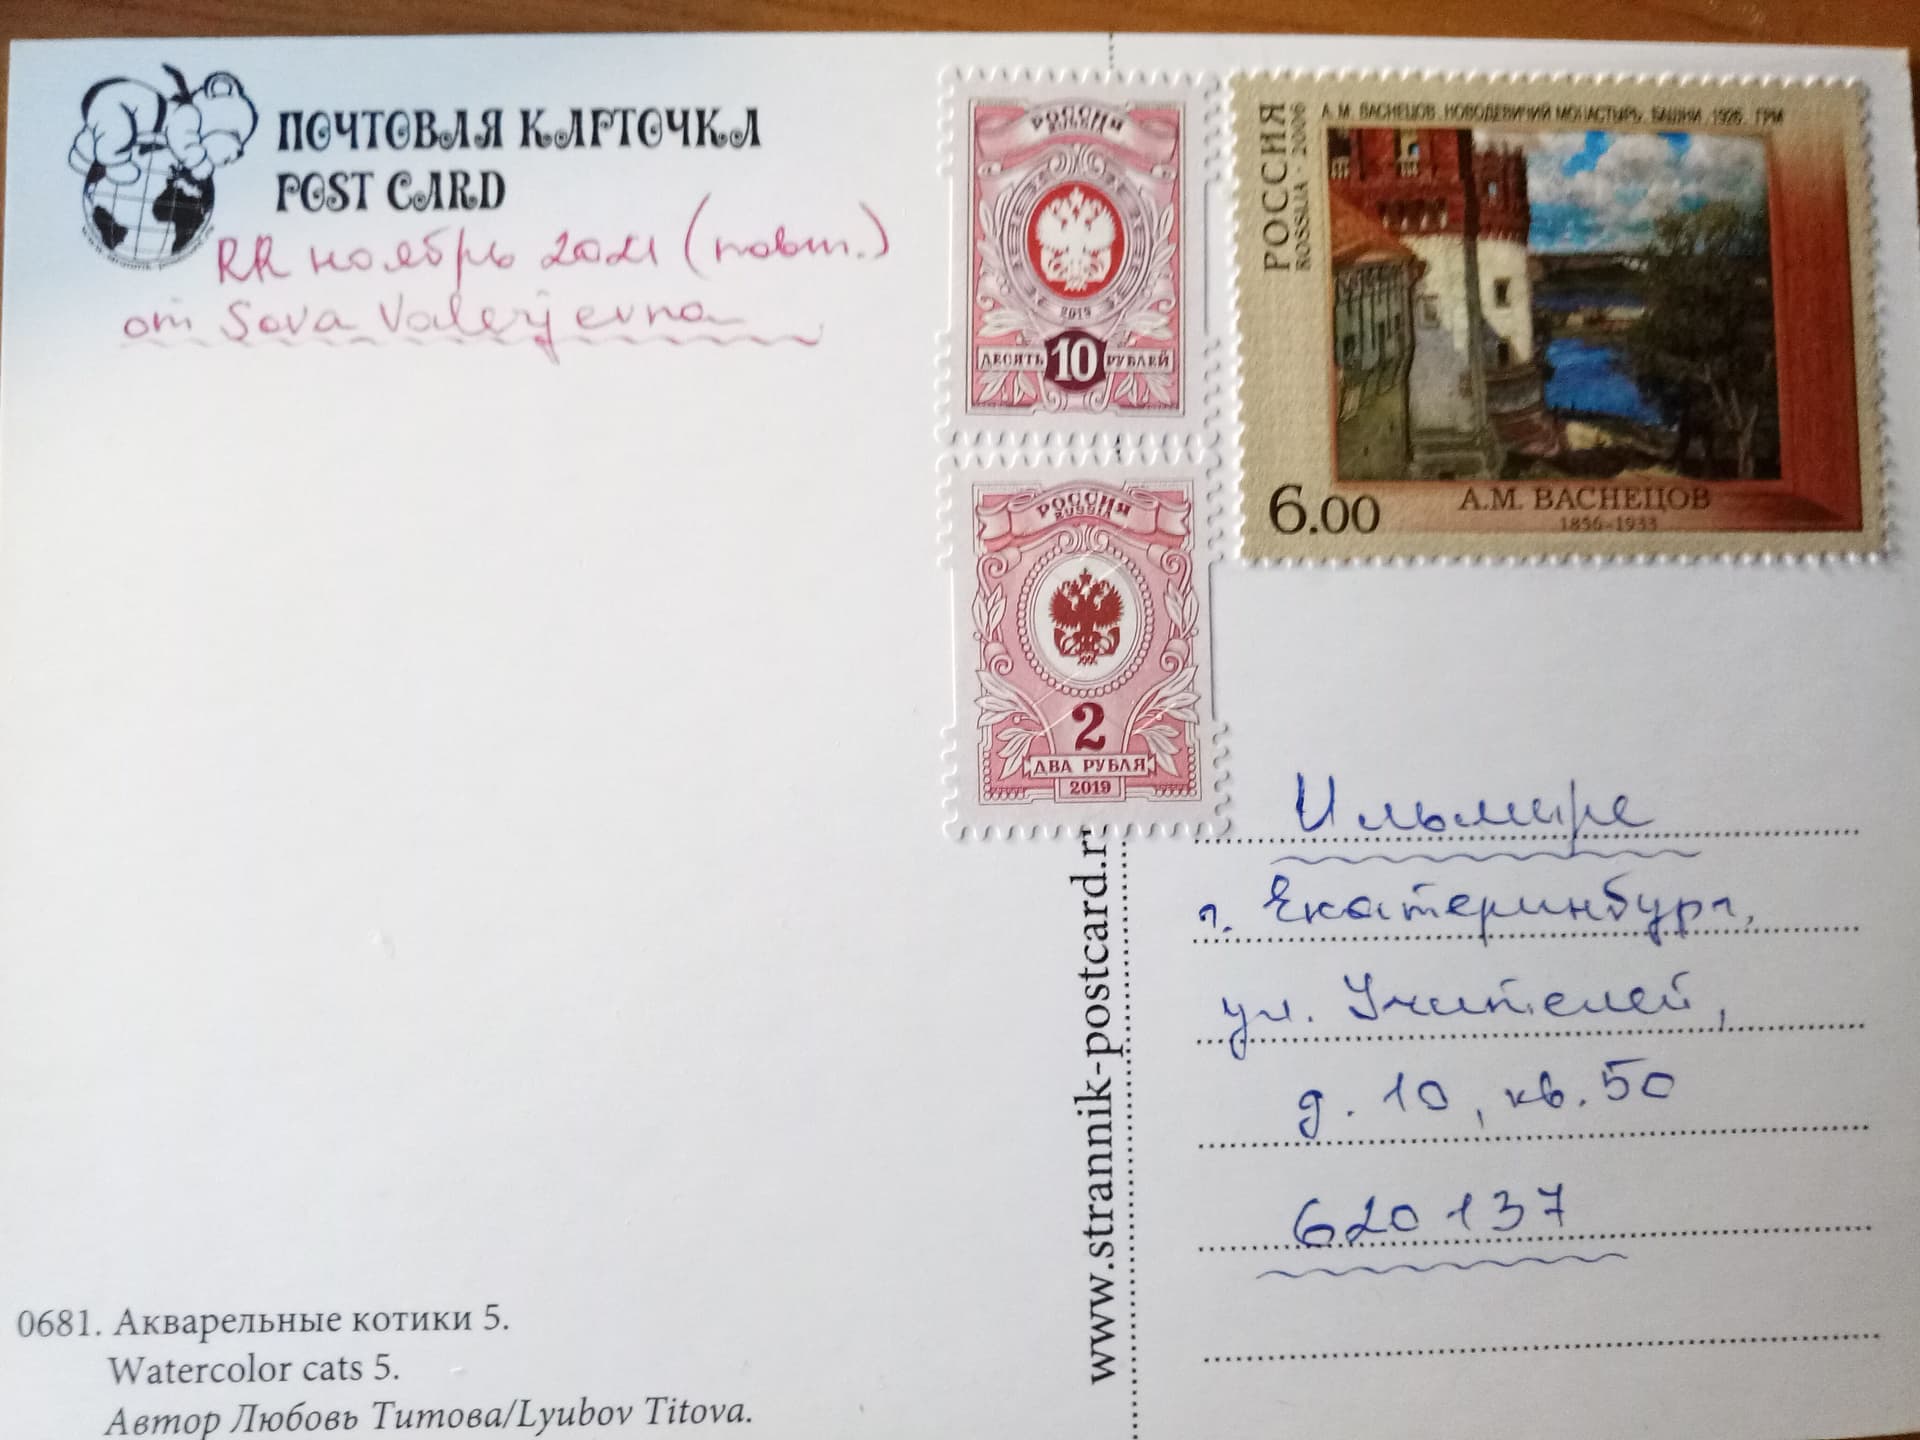 ПОЧТОВАЯ КАРТОЧКА
POST CARD
RR ноябрь 2021 (повт.)
от Sova Valerjevna
РОССИЯ
RUSSIA
2019
ДЕСЯТЬ 10 РУБЛЕЙ
РОССИЯ
RUSSIA
2
ДВА РУБЛЯ
2019
А. М. ВАСНЕЦОВ. НОВОДЕВИЧИЙ МОНАСТЫРЬ. БАШНИ. 1926. ГРМ
РОССИЯ
ROSSIA · 2006
6.00
А.М. ВАСНЕЦОВ
1856-1933
Ильмире
г. Екатеринбург,
ул. Учителей,
д. 10, кв. 50
620137
www.strannik-postcard.r
0681. Акварельные котики 5.
Watercolor cats 5.
Автор Любовь Титова/Lyubov Titova.